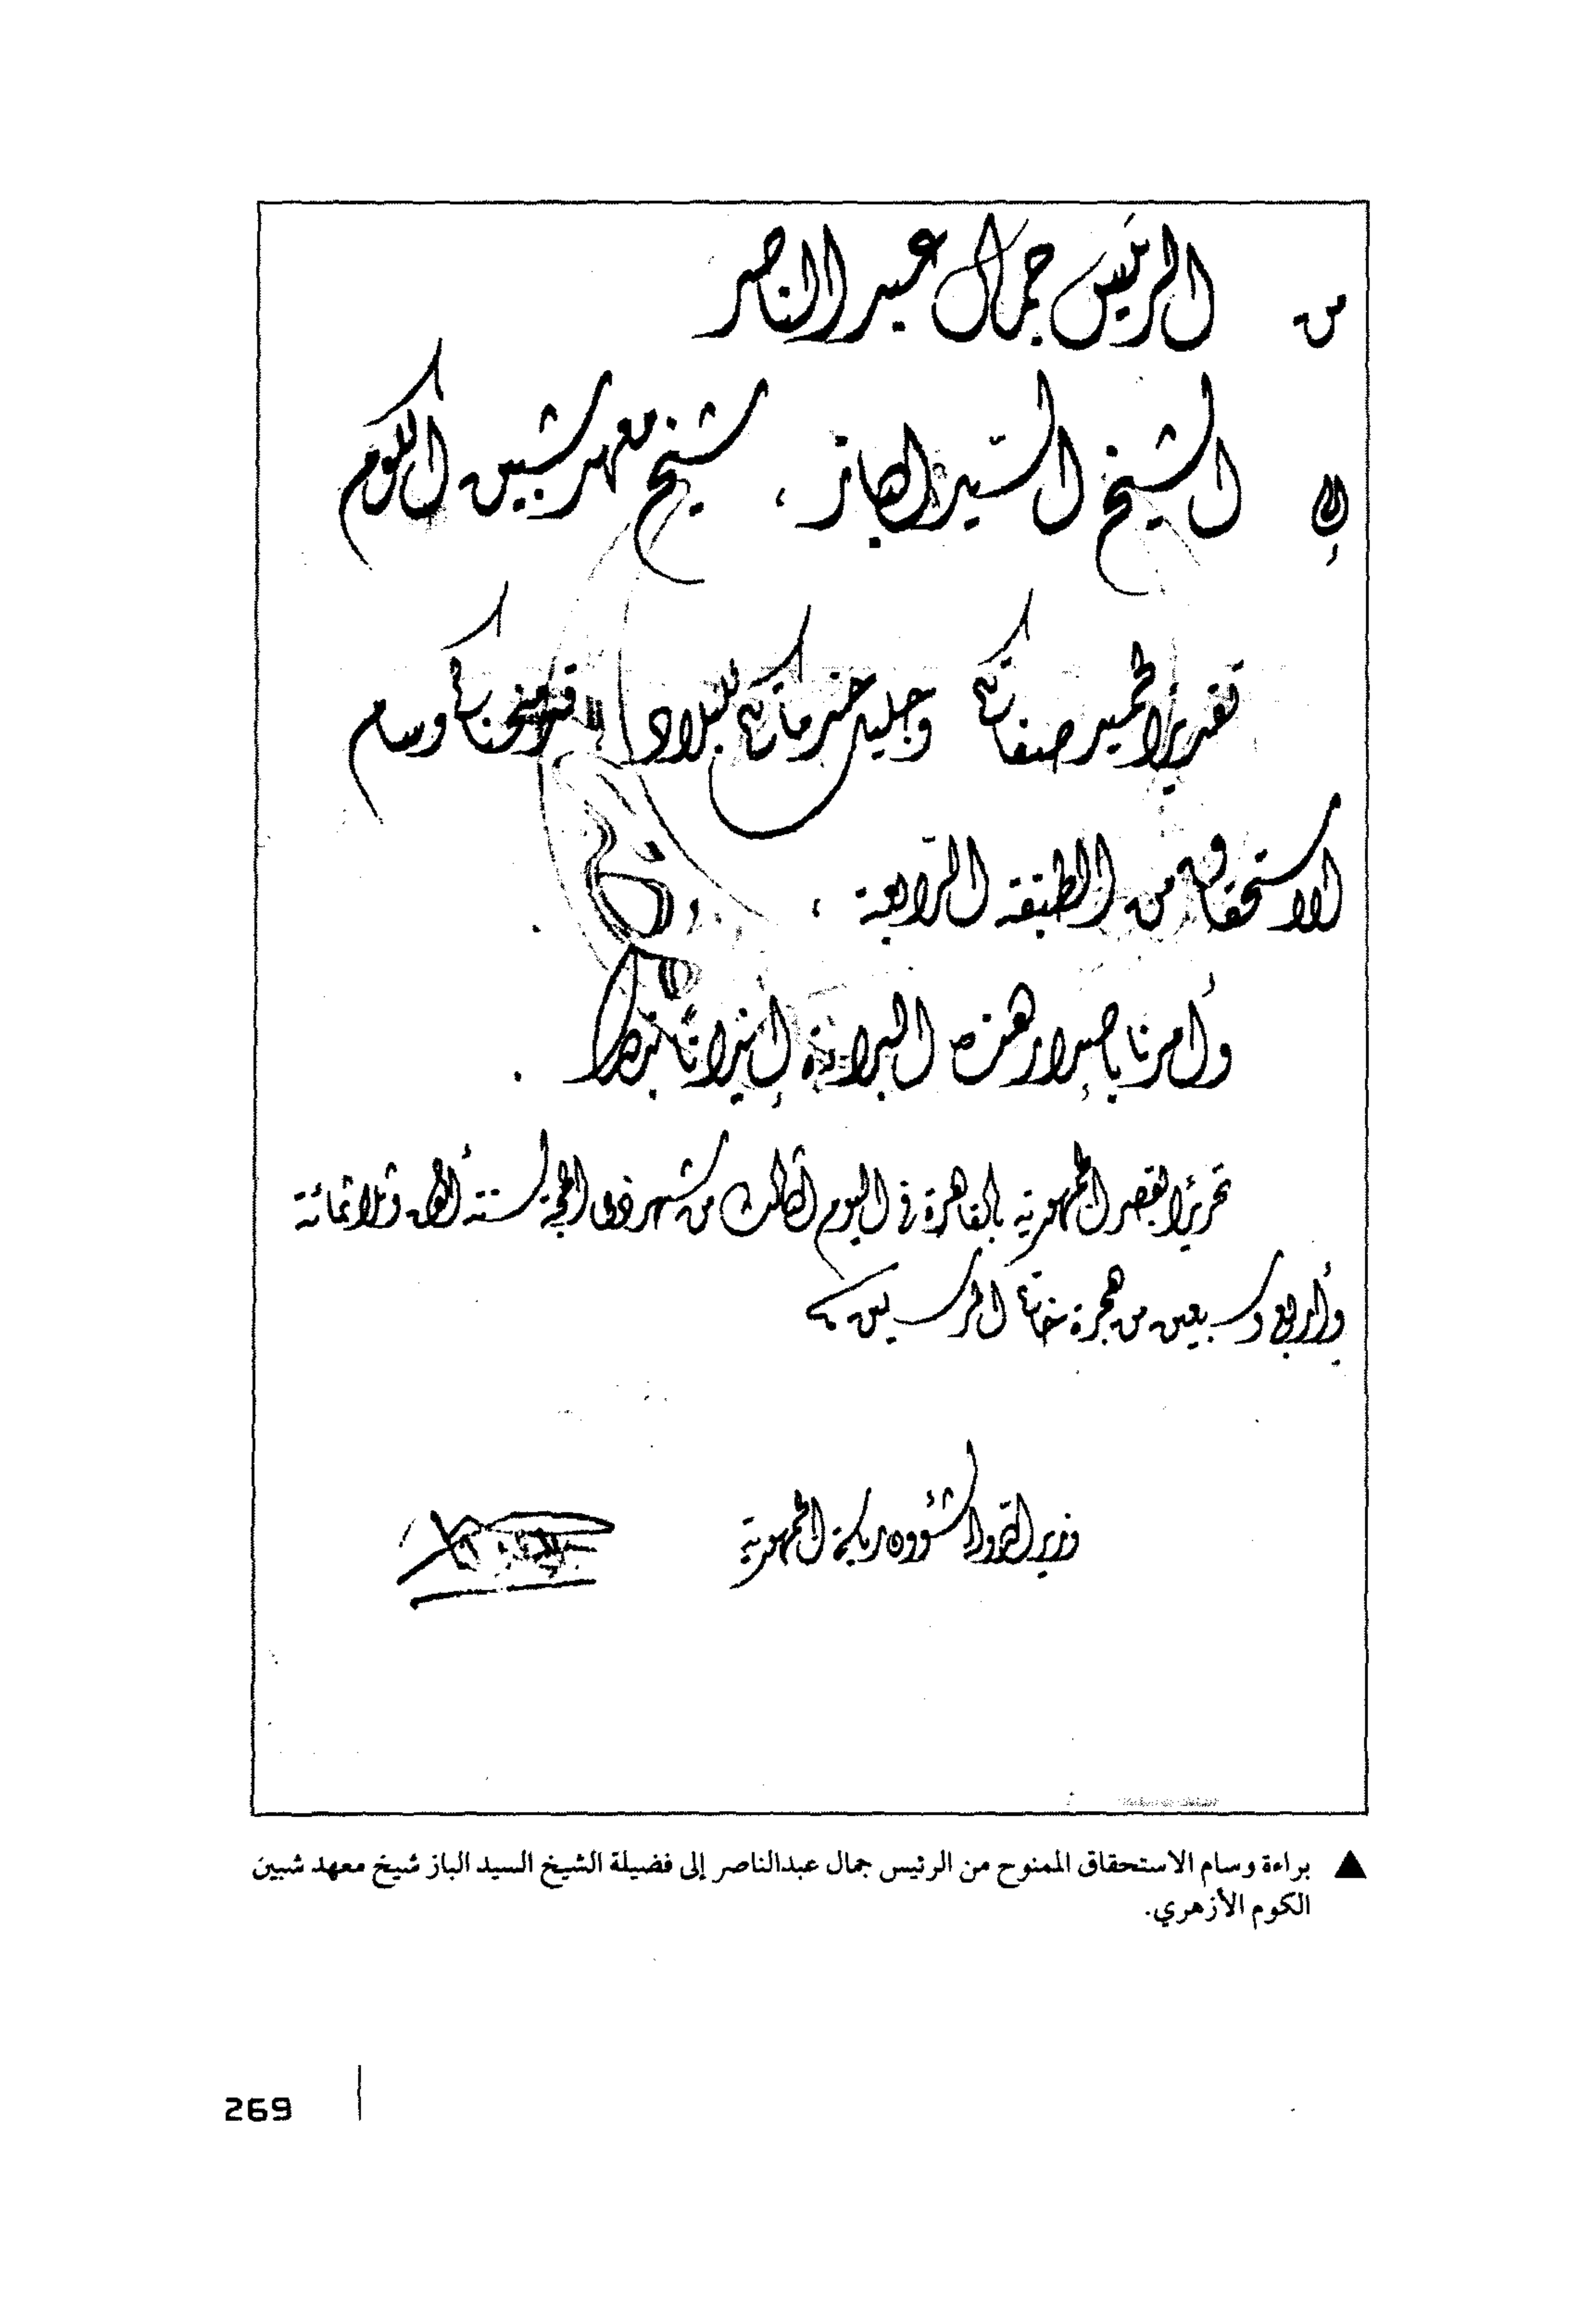 من الرئيس جمال عبد الناصر
إلى الشيخ السّيد الباز ، شيخ معهد شبين الكوم
تقديرًا لحميد صفاتكم وجليل خدماتكم للبلاد قد منحناكم وسام
الاستحقاق من الطبقة الرّابعة ،
وأمرنا بإصدار هذه البراءة إيذانًا بذلك .
تحريرًا بقصر الجمهورية بالقاهرة في اليوم الثالث من شهر ذي الحجة لسنة ألف وثلاثمائة
وأربع وسبعين من هجرة خاتم المرسلين
وزير الدولة لشؤون رياسة الجمهورية
▲ براءة وسام الاستحقاق الممنوح من الرئيس جمال عبدالناصر إلى فضيلة الشيخ السيد الباز شيخ معهد شبين
الكوم الأزهري.
269